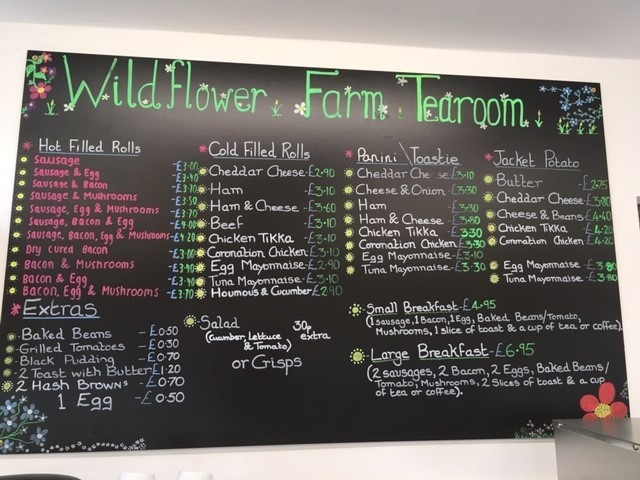 Wildflower Farm Tearoom
Hot Filled Rolls
Sausage -£3.00
Sausage & Egg -£3.40
Sausage & Bacon -£3.70
Sausage & Mushrooms -£3.50
Sausage, Egg & Mushrooms -£3.70
Sausage, Bacon & Egg -£4.00
Sausage, Bacon, Egg & Mushrooms -£4.20
Dry Cured Bacon -£3.00
Bacon & Mushrooms -£3.40
Bacon & Egg -£3.40
Bacon, Egg & Mushrooms -£3.70
Extras
Baked Beans -£0.50
Grilled Tomatoes -£0.30
Black Pudding -£0.70
2 Toast with Butter £1.20
2 Hash Browns -£0.70
1 Egg -£0.50
Cold Filled Rolls
Cheddar Cheese -£2.90
Ham -£3.10
Ham & Cheese -£3.60
Beef -£3.10
Chicken Tikka -£3.10
Coronation Chicken £3.10
Egg Mayonnaise -£2.90
Tuna Mayonnaise -£3.10
Houmous & Cucumber £2.90
Salad 30p
(Cucumber, Lettuce extra
& Tomato)
or Crisps
Panini \ Toastie
Cheddar Cheese £3.10
Cheese & Onion -£3.30
Ham -£3.30
Ham & Cheese -£3.80
Chicken Tikka -£3.30
Coronation Chicken £3.30
Egg Mayonnaise -£3.10
Tuna Mayonnaise -£3.30
Jacket Potato
Butter -£2.75
Cheddar Cheese -£3.80
Cheese & Beans £4.40
Chicken Tikka -£4.20
Coronation Chicken £4.20
Egg Mayonnaise -£3.80
Tuna Mayonnaise -£3.80
Small Breakfast -£4.95
(1 Sausage, 1 Bacon, 1 Egg, Baked Beans/Tomato,
Mushrooms, 1 slice of toast & a cup of tea or coffee)
Large Breakfast -£6.95
(2 Sausages, 2 Bacon, 2 Eggs, Baked Beans/
Tomato, Mushrooms, 2 Slices of toast & a cup
of tea or coffee).